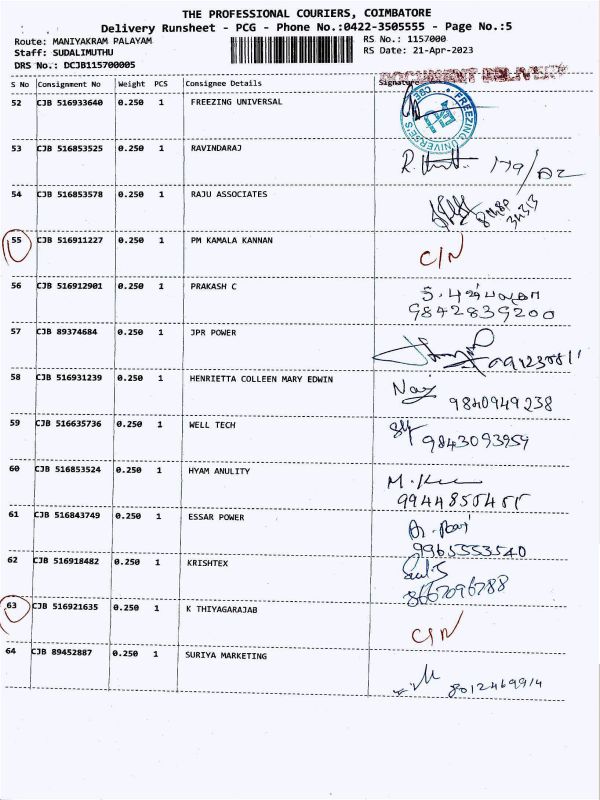 THE PROFESSIONAL COURIERS, COIMBATORE
Delivery Runsheet - PCG - Phone No.:0422-3505555 - Page No.:5
Route: MANIYAKRAM PALAYAM RS No.: 1157000
Staff: SUDALIMUTHU RS Date: 21-Apr-2023
DRS No.: DCJB115700005
DOCUMENT DELIVERY
S No Consignment No Weight PCS Consignee Details Signature
52 CJB 516933640 0.250 1 FREEZING UNIVERSAL
FREEZING UNIVERSES CBE
53 CJB 516853525 0.250 1 RAVINDARAJ
54 CJB 516853578 0.250 1 RAJU ASSOCIATES
55 CJB 516911227 0.250 1 PM KAMALA KANNAN C/N
56 CJB 516912901 0.250 1 PRAKASH C
9842839200
57 CJB 89374684 0.250 1 JPR POWER
58 CJB 516931239 0.250 1 HENRIETTA COLLEEN MARY EDWIN
9840949238
59 CJB 516635736 0.250 1 WELL TECH 9843093959
60 CJB 516853524 0.250 1 HYAM ANULITY
61 CJB 516843749 0.250 1 ESSAR POWER
9965553540
62 CJB 516918482 0.250 1 KRISHTEX
8667096788
63 CJB 516921635 0.250 1 K THIYAGARAJAB C/N
64 CJB 89452887 0.250 1 SURIYA MARKETING
8012469914